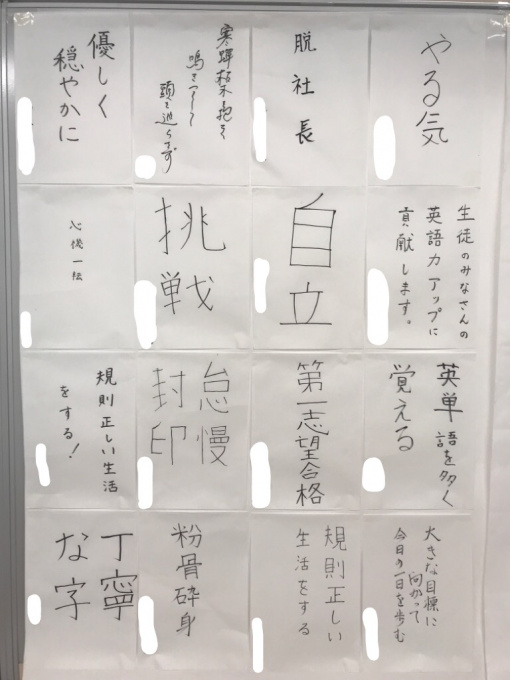 やる気
脱社長
寒蝉枯木を抱き
鳴きつくして
頭を廻らさず
優しく
穏やかに
生徒のみなさんの
英語力アップに
貢献します。
自立
挑戦
心機一転
英単語を多く
覚える
第一志望合格
怠慢
封印
規則正しい生活
をする！
大きな目標に
向かって
今日の一日を歩む
規則正しい
生活をする
粉骨砕身
丁寧
な字